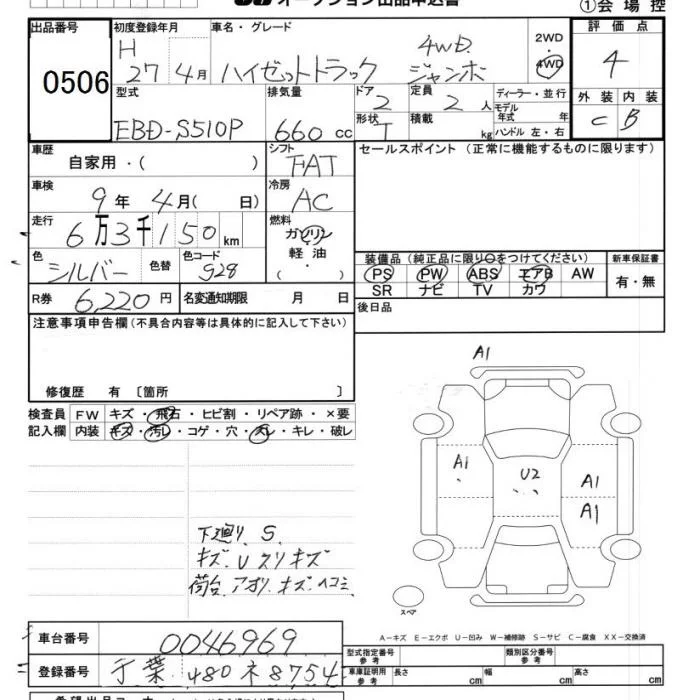 オークション出品申込書
①会場控
出品番号 0506
初度登録年月 H 27年 4月
車名・グレード 4WD
ハイゼットトラック ジャンボ
2WD
4WD
評価点 4
外装 内装
C B
型式 EBD-S510P
排気量 660 cc
ドア 2
定員 2 人
形状 T
積載 kg
ディーラー・並行
モデル年式 年
ハンドル 左・右
車歴 自家用・( )
シフト FAT
セールスポイント (正常に機能するものに限ります)
車検 9年 4月( 日)
冷房 AC
走行 6万3千150km
燃料 ガソリン
軽油
( ・ )
色 シルバー 色替 色コード S28
装備品(純正品に限り○をつけてください) 新車保証書
PS PW ABS エアB AW 有・無
SR ナビ TV カワ
R券 6,220円 名変通知期限 月 日
後日品
注意事項申告欄(不具合内容等は具体的に記入して下さい)
修復歴 有 〔箇所 〕
検査員 FW キズ・飛石・ヒビ割・リペア跡・×要
記入欄 内装 キズ・汚レ・コゲ・穴・スレ・キレ・破レ
A1
A1 U2 A1
A1
下廻り S.
キズ. U スリキズ
荷台. アオリ. キズ. ヘコミ
スペア
A-キズ E-エクボ U-凹み W-補修跡 S-サビ C-腐食 XX-交換済
車台番号 0046969
登録番号 千葉 480 ネ 8754
型式指定番号 参考 類別区分番号 参考
車庫証明用 参考 長さ cm 幅 cm 高さ cm